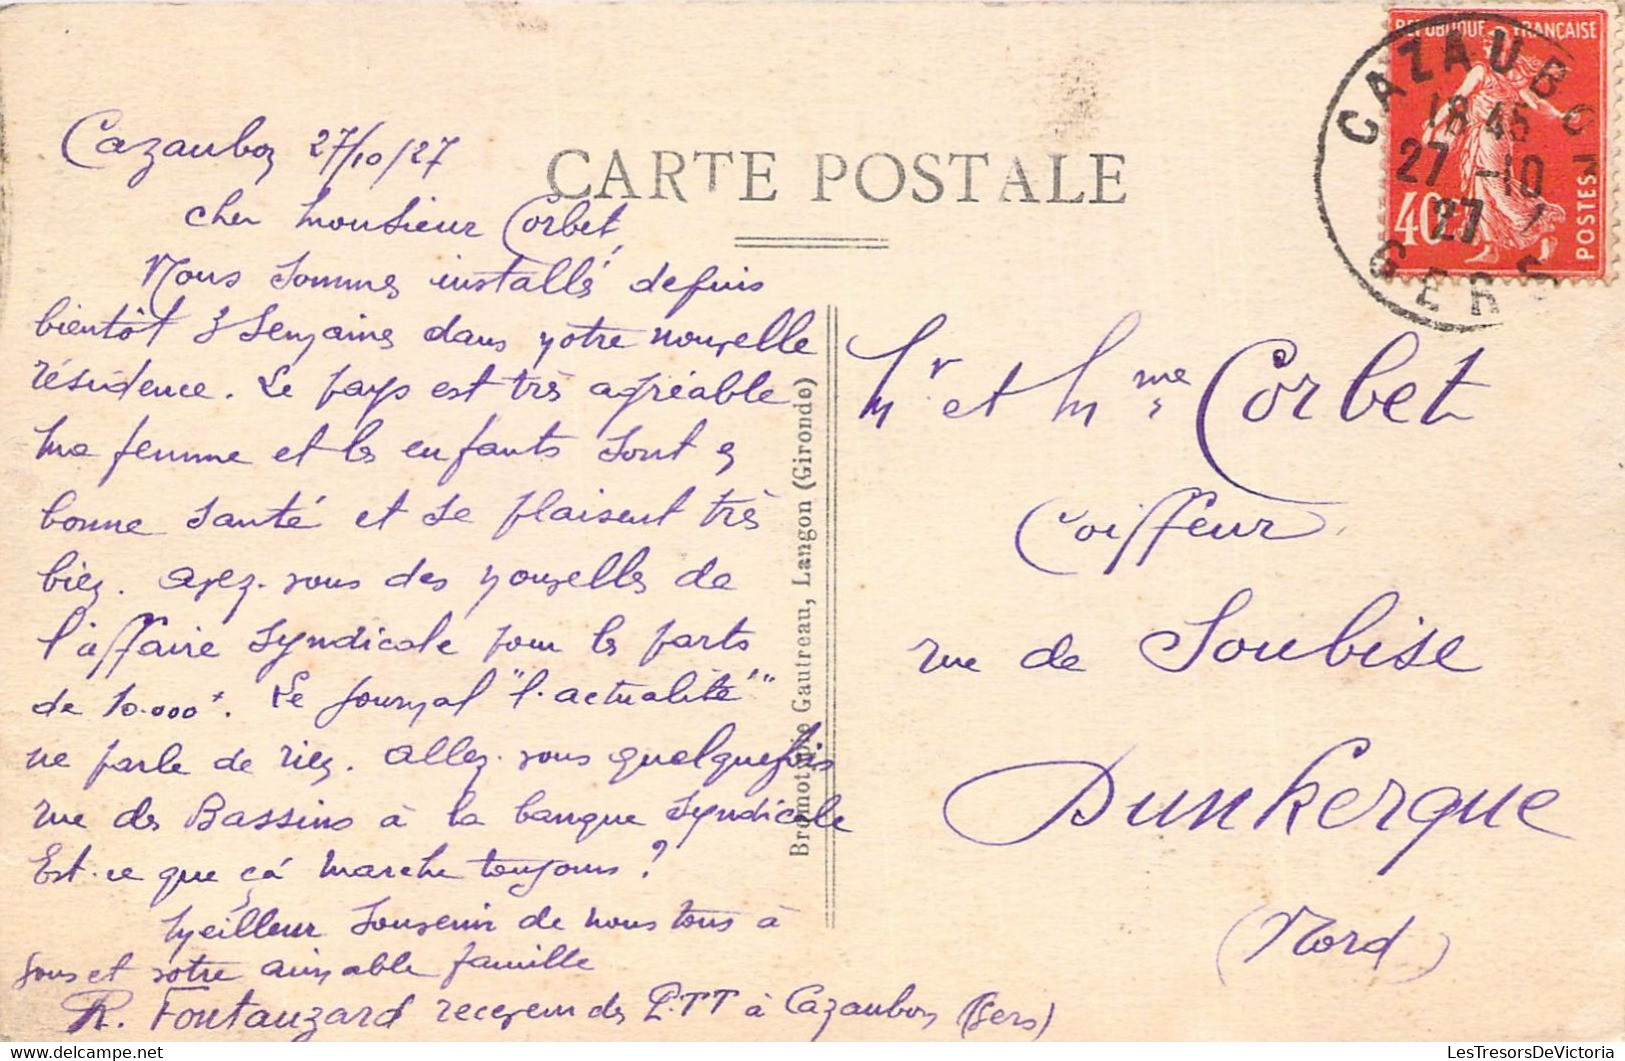 Cazaubon 27/10/27
CARTE POSTALE
cher Monsieur Corbet,
Nous sommes installés depuis
bientôt 3 semaines dans notre nouvelle
résidence. Le pays est très agréable
Ma femme et les enfants sont en
bonne santé et se plaisent très
bien. avez-vous des nouvelles de
l'affaire syndicale pour les parts
de 10.000 f. Le journal "l'actualité"
ne parle de rien. allez-vous quelquefois
rue des Bassins à la banque syndicale
Est-ce que çà marche toujours ?
Meilleur souvenir de nous tous à
vous et votre aimable famille
R. Fontanzard receveur des P.TT à Cazaubon (Gers)
Bromotypie Gautreau, Langon (Gironde)
REPUBLIQUE FRANÇAISE
40c
POSTES
CAZAUBON
18 45
27 -10
27
GERS
Mr et Mme Corbet
Coiffeur
rue de Soubise
Dunkerque
(Nord)
LesTresorsDeVictoria